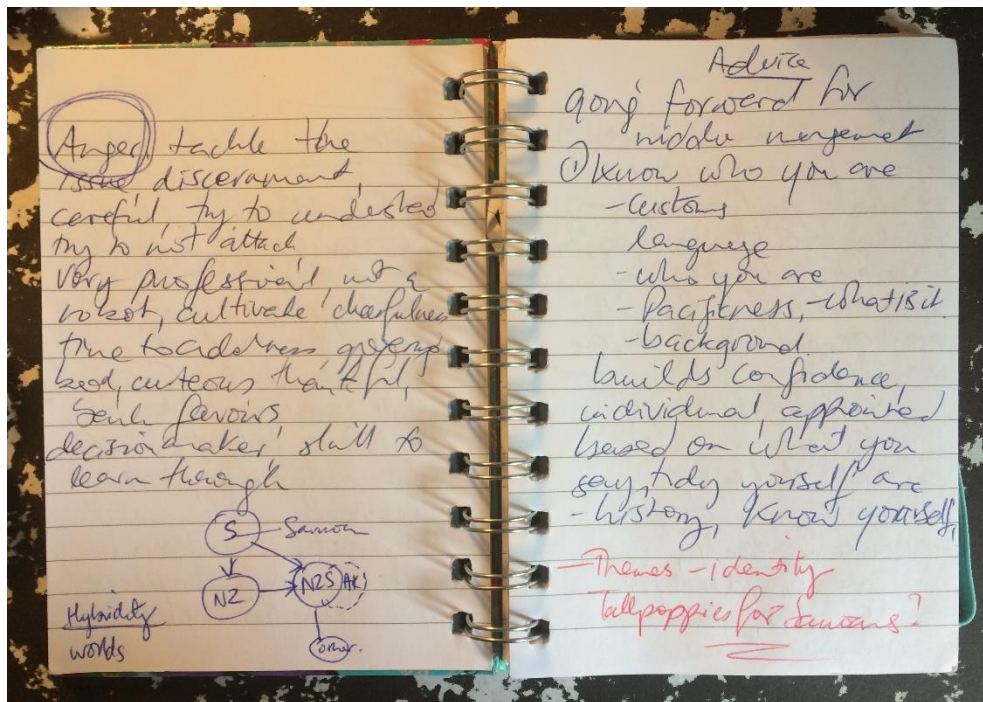 Anger, tackle the
issue, discernment,
careful, try to understand
try to not attack
very professional, not a
robot, cultivate cheerfulness
time to address,
thankful,
favours,
decision maker, skill to
learn through
S - Samoan
NZ
NZS
AK
other.
Hybridity
worlds
Advice
going forward for
middle mangement
① Know who you are
- customs
language
- who you are
- Pacificness, - what is it
- background
builds confidence,
individual, appointed
based on what you
say, tidy yourself are
- history, Know yourself,
- Themes - identity
Tall poppies for Samoans?